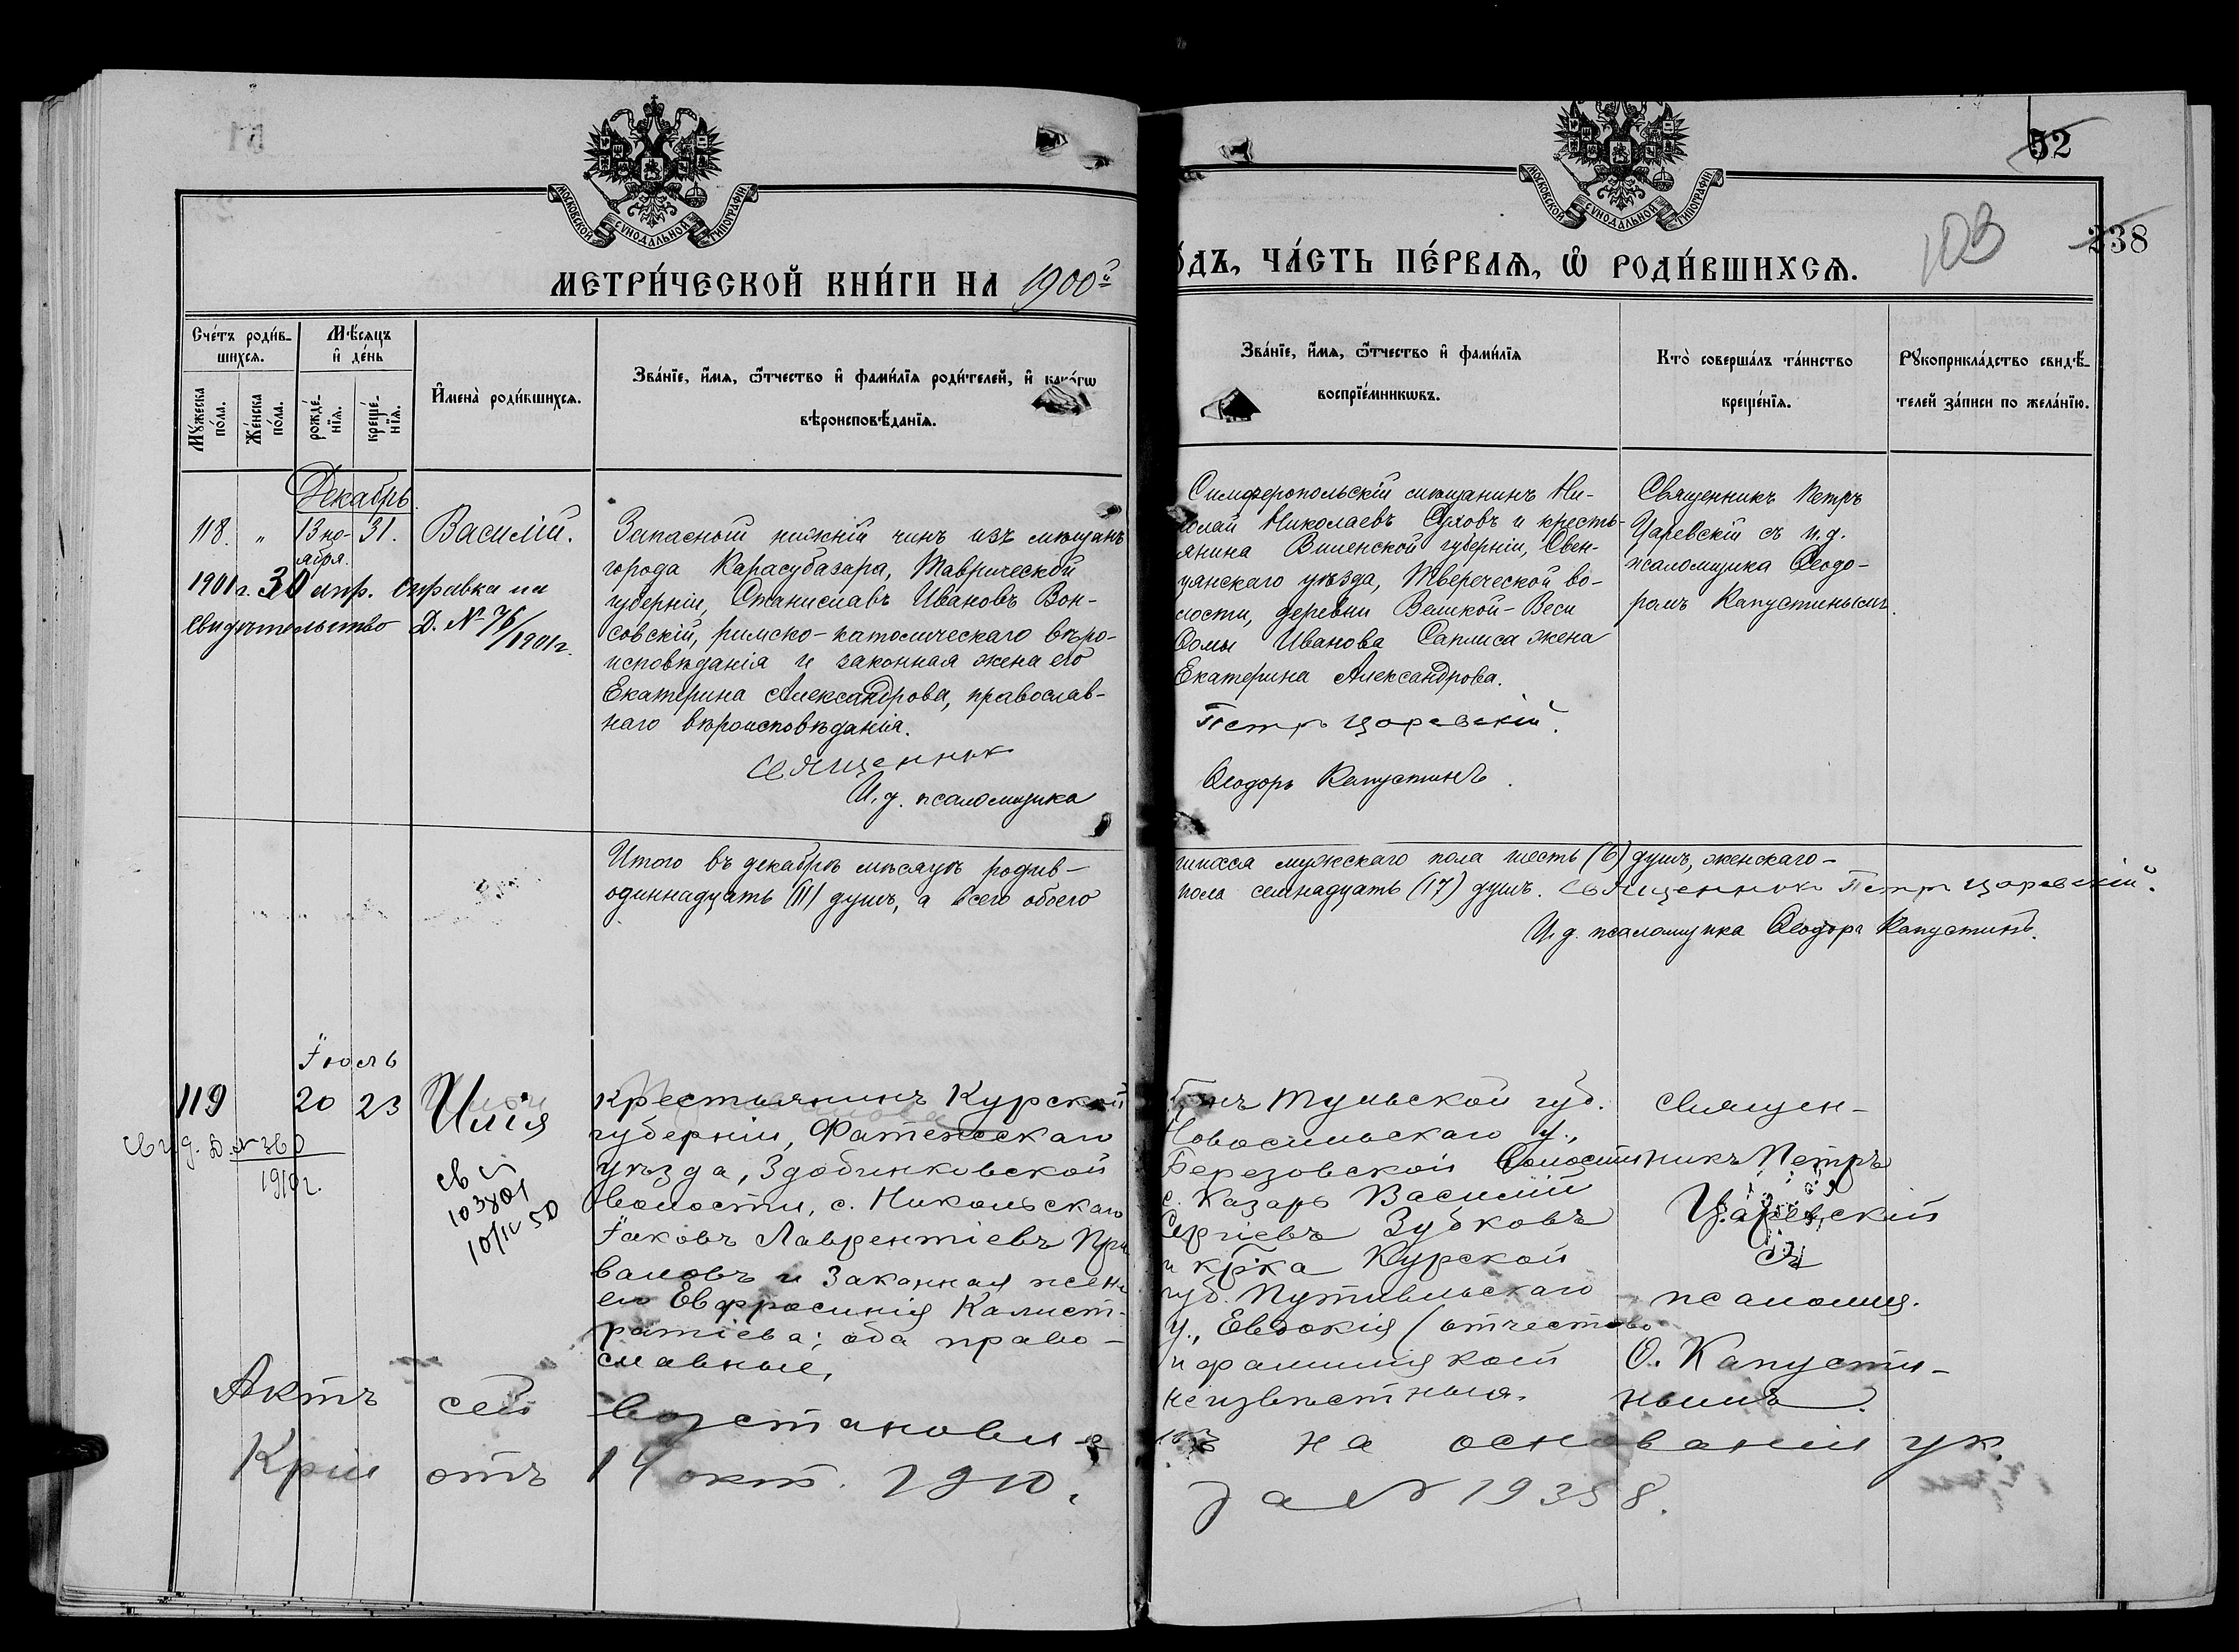 МОСКОВСКОЙ СѴНОДАЛЬНОЙ ТИПОГРАФІИ
МОСКОВСКОЙ СѴНОДАЛЬНОЙ ТИПОГРАФІИ
52
103
238
МЕТРИ́ЧЕСКОЙ КНИ́ГИ НА 1900й
О́ДЪ, ЧА́СТЬ ПЕ́РВАѦ, Ѡ РОДИ́ВШИХСѦ.
Сче́тъ роди́в-
шихсѧ.
Мѣ́сѧцъ
и҆ де́нь
Мꙋ́жеска по́ла.
Же́нска по́ла.
рожде́-
нїѧ.
креще́-
нїѧ.
И҆мена̀ роди́вшихсѧ.
Зва́нїе, и҆́мѧ, ѻ҆́тчество и҆ фами́лїѧ роди́телей, и҆ како́гѡ
вѣроисповѣ́данїѧ.
Зва́нїе, и҆́мѧ, ѻ҆́тчество и҆ фами́лїѧ
воспрїе́мникѡвъ.
Кто̀ соверша́лъ та́инство
креще́нїѧ.
Рꙋкоприкла́дство свидѣ́-
телей за́писи по жела́нїю.
Декабрь.
118. " 13 но-
ября. 31. Василій.
1901 г. 30 апр. справка на
свидѣтельство Д. № 76/1901 г.
Запасной нижній чинъ изъ мѣщанъ
города Карасубазара, Таврической
губерніи, Станиславъ Ивановъ Вон-
совскій, римско-католическаго вѣро-
исповѣданія и законная жена его
Екатерина Александрова, православ-
наго вѣроисповѣданія.
Священник
И. д. псаломщика
Симферопольскій мѣщанинъ Ни-
колай Николаевъ Суховъ и кресть-
янина Виленской губерніи, Свен-
цянскаго уѣзда, Тверечской во-
лости, деревни Великой-Веси
Ѳомы Иванова Саплиса жена
Екатерина Александрова.
Петръ Царевскій.
Ѳеодоръ Капустинъ.
Священникъ Петръ
Царевскій съ и. д.
псаломщика Ѳеодо-
ромъ Капустинымъ.
Итого въ декабрѣ мѣсяцѣ родив-
шихся мужскаго пола шесть (6) душъ, женскаго-
одиннадцать (11) душъ, а всего обоего
пола семнадцать (17) душъ. Священник Петръ Царевскій.
И. д. псаломщика Ѳеодоръ Капустинъ.
Іюль
119 20 23 Илія
Свид. Д. № 360
1910 г.
св
103801
10/IV 50
крестьянинъ Курской
губерніи, Фатежскаго
уѣзда, Здобинковской
волости, с. Никольскаго
Іаковъ Лаврентіевъ При
валовъ и законная жена
его Евфросинія Калист-
ратіева; оба право-
славные.
Тульской губ.
Новосильскаго у.,
Березовской волости
с. Казарь Василій
Сергіевъ Зубковъ
и кр-ка Курской
губ. Путивльскаго
у., Евдокія (отчество
и фамилія коей
неизвѣстныя.
священ-
никъ Петръ
Царевскій
съ
псаломщ.
Ѳ. Капусти-
нымъ.
Актъ сей возстановленъ на основаніи ук.
отъ 14 окт. 1910.
за № 19358.